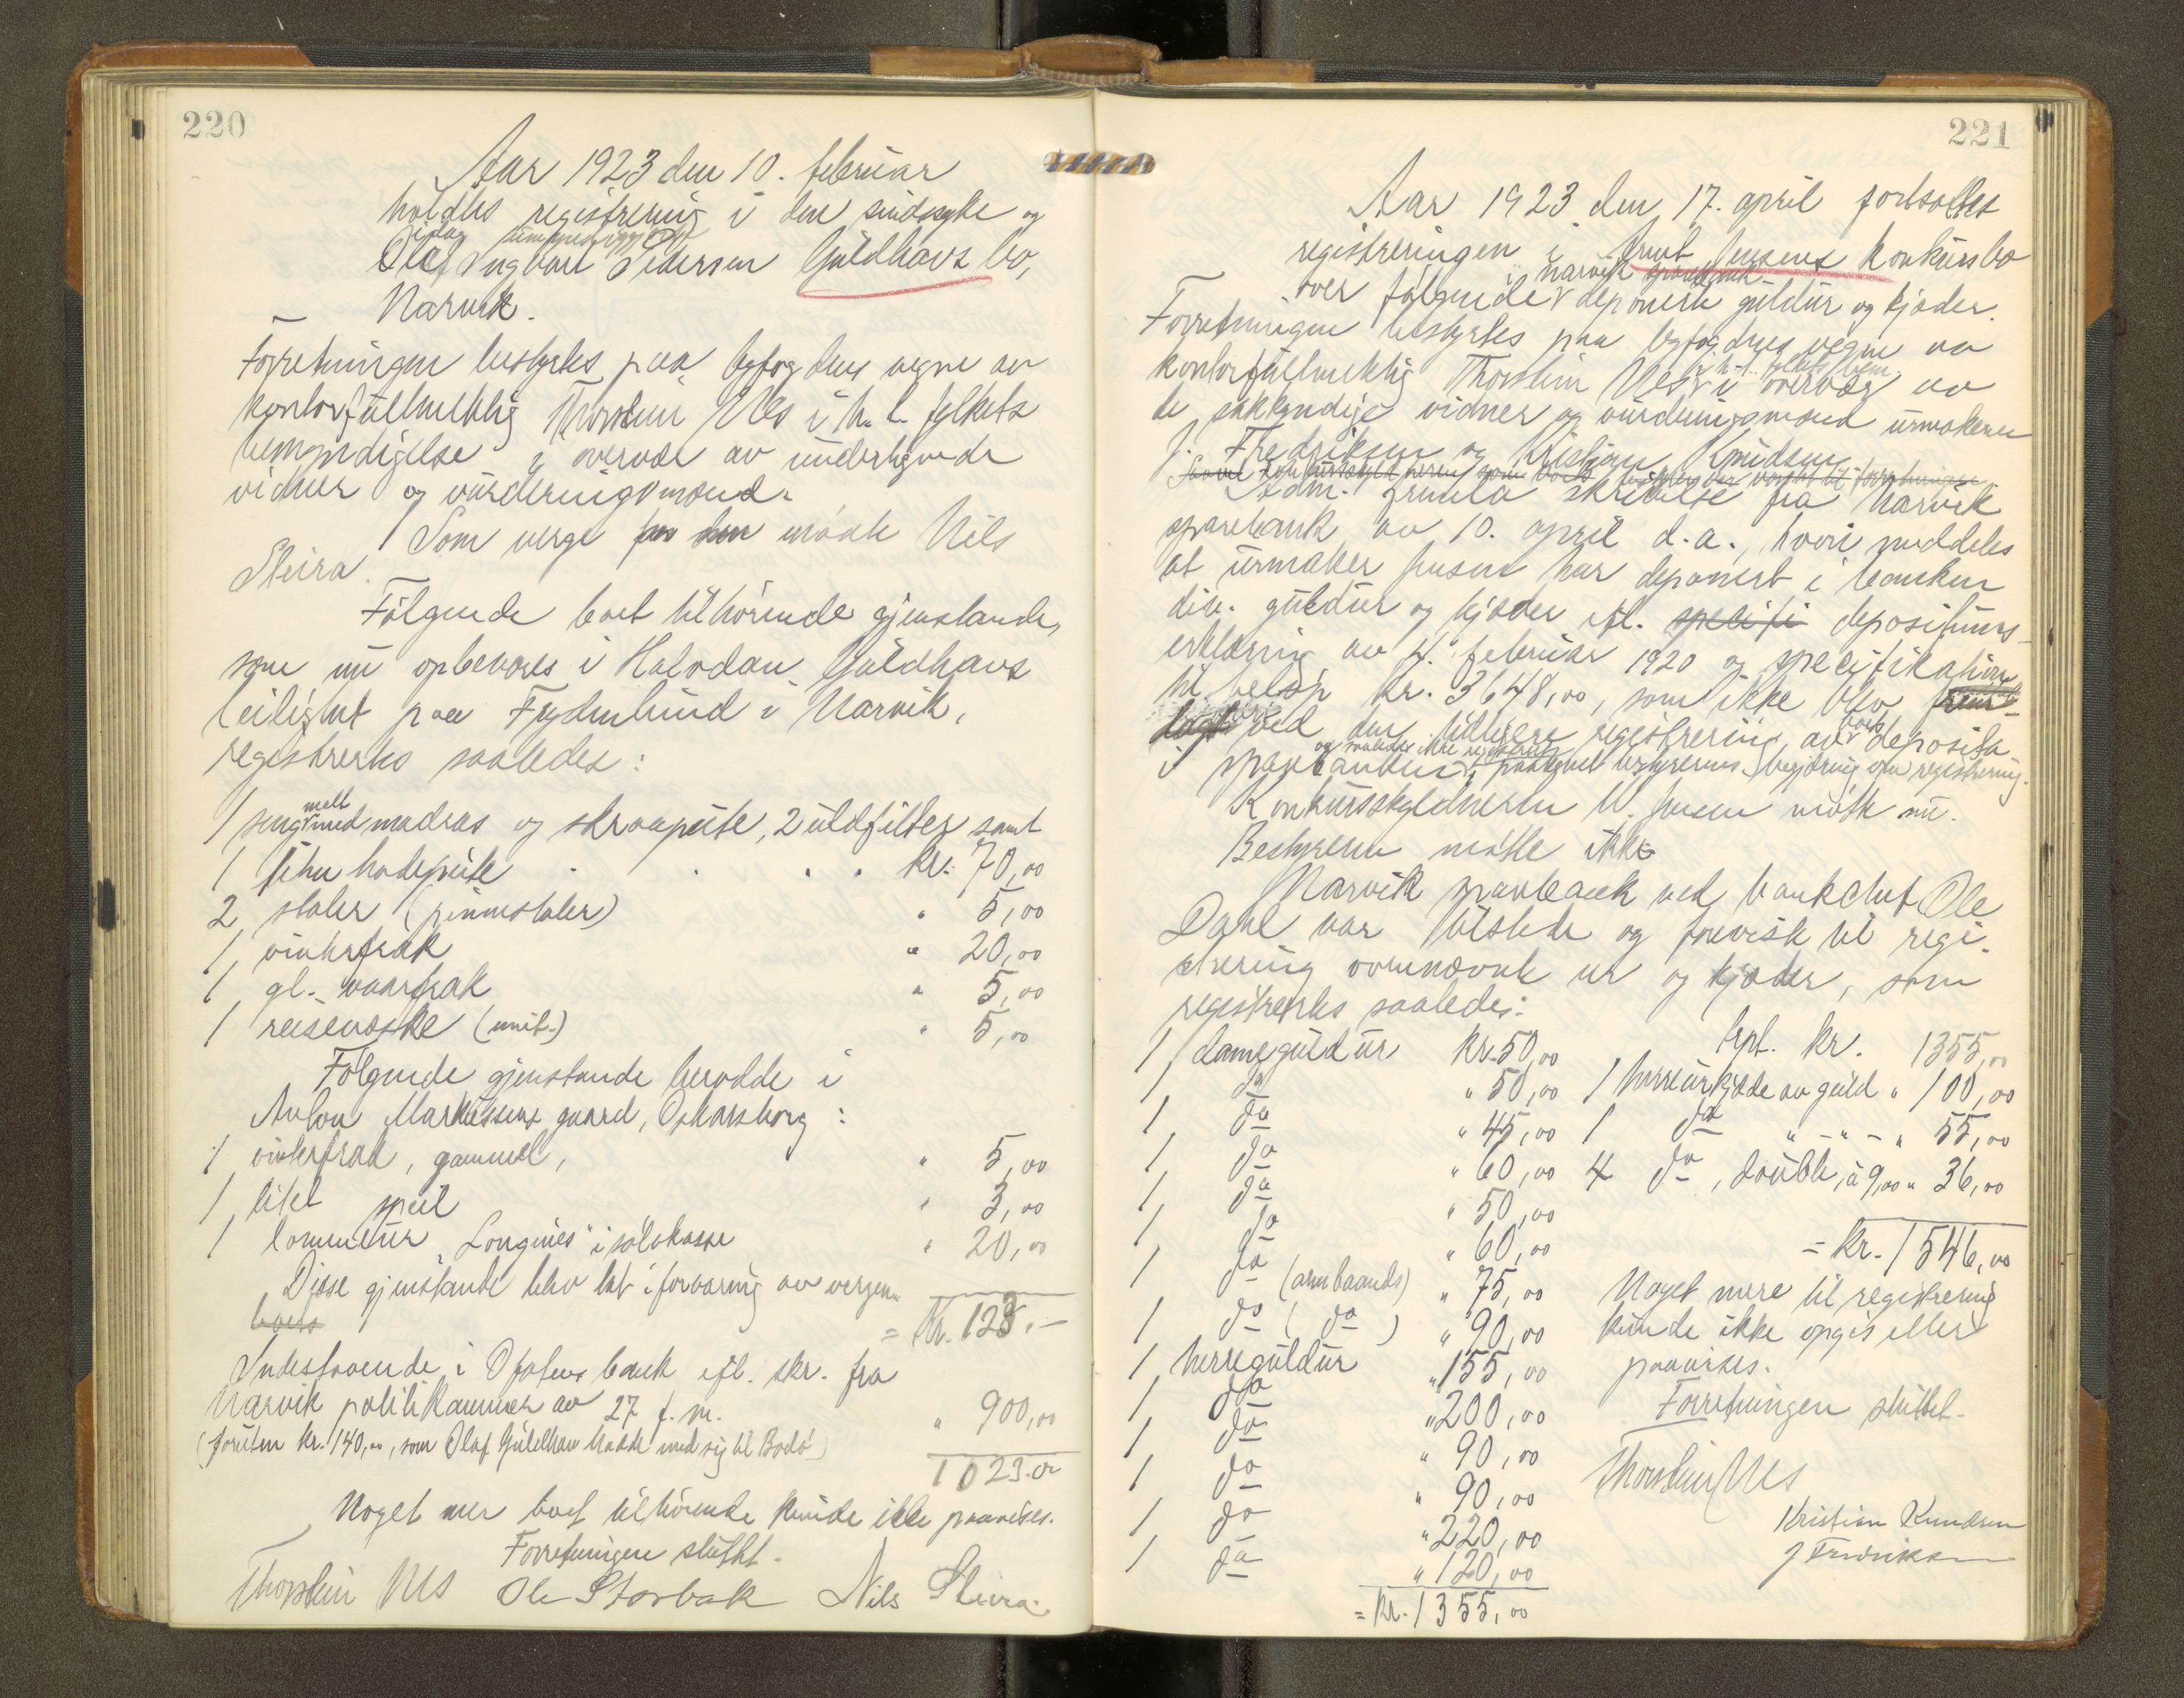 220
Aar 1923 den 10. februar
holdtes registrering i den sindssyke og
idag umyndiggjorte
Olaf Ingvart Pedersen Guldhavs bo,
Narvik.
Forretningen bestyrtes paa byfogdens vegne av
kontorfuldmektig Thorstein Nes i h. t. fylkets
bemyndigelse i overvær av undertegnede
vidner og vurderingsmænd.
Som verge møtte Nils
Steira.
Følgende boet tilhørende gjenstande,
som nu opbevares i Halvdan Guldhavs
leilighet paa Frydenlund i Narvik,
registrertes saaledes:
1 seng med madras og skraapute, 2 uldfilter samt
1 liten hodepute . . . . kr. 70,00
2 stoler (pinnestoler) " 5,00
1 vinterfrak " 20,00
1 gl. vaarfrak " 5,00
1 reiseveske (imit.) " 5,00
Følgende gjenstande berodde i
Anton Markussens gaard, Oskarsborg:
1 vinterfrak, gammel, " 5,00
1 litet speil " 3,00
1 lommeur "Longines" i sølvkasse " 20,00
Disse gjenstande blev tat i forvaring av vergen.
boets = Kr. 123.-
Indestaaende i Ofotens bank efl. skr. fra
Narvik politikammer av 27 f. m. " 900,00
(foruten kr. 140,00, som Olaf Guldhav hadde med sig til Bodø)
1023.00
Noget mer boet tilhørende kunde ikke paavises.
Forretningen sluttet.
Thorstein Nes Ole Storbak Nils Steira.
221
Aar 1923 den 17. april fortsattes
registreringen i Arnt Jensens konkursbo
i Narvik sparebank
over følgende deponerte guldur og kjæder.
Forretningen bestyrtes paa byfogdens vegne av
kontorfuldmektig Thorstein Nes i h. t. fylkets bem. i overvær av
de sakkyndige vidner og vurderingsmænd urmakerne
J. Fredriksen og Kristian Knudsen
Adm. fremla skrivelse fra Narvik
sparebank av 10. april d.a., hvori meddeles
at urmaker Jensen har deponert i banken
div. guldur og kjæder efl. specifi depositums-
erklæring av 4. februar 1920 og specifikation
til beløp kr. 3648,00, som ikke blev frem-
lagt ved den tidligere registrering av boets deposita
og saaledes ikke registrert
i sparebanken, bestyrerens begjæring om registrering.
Konkursskyldneren Jensen møtte nu.
Bestyreren møtte ikke
Narvik sparebank ved bankchef Ole
Dahl var tilstede og foreviste til regi-
strering ovennævnte ur og kjæder, som
registrertes saaledes:
1 dameguldur kr. 50,00
1 do " 50,00
1 do " 45,00
1 do " 60,00
1 do " 50,00
1 do " 60,00
1 do (armbaands) " 75,00
1 do ( do ) " 90,00
1 herreguldur " 155,00
1 do " 200,00
1 do " 90,00
1 do " 90,00
1 do " 220,00
1 do " 120,00
= Kr. 1355,00
Trpt. kr. 1355,00
1 herreurkjæde av guld " 100,00
1 do " - " - " 55,00
4 do, double, à 9,00 " 36,00
= kr. 1546,00
Noget mere til registrering
kunde ikke opgis eller
paavises.
Forretningen sluttet.
Thorstein Nes
Kristian Knudsen
J Fredriksen